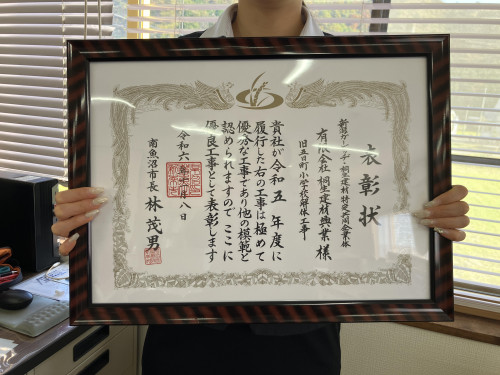 表彰状
新潟ケンベイ・桐生建材特定共同企業体
有限会社 桐生建材興業 様
旧五日町小学校解体工事
貴社が令和五年度に
履行した右の工事は極めて
優秀な工事であり他の模範と
認められますのでここに
優良工事として表彰します
令和六年 月八日
南魚沼市長 林茂男